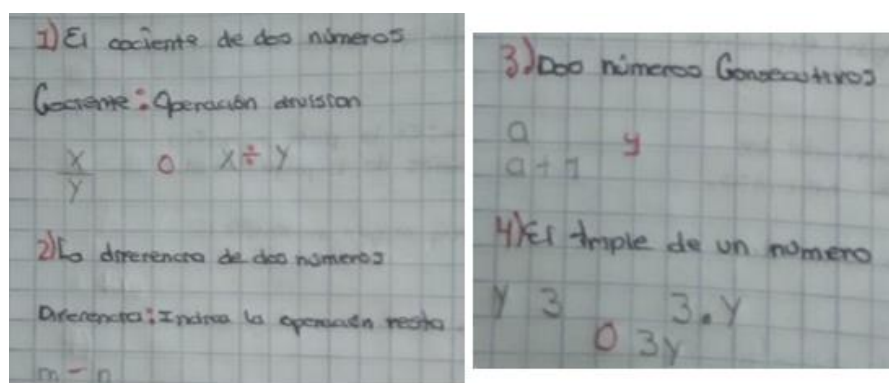 1) El cociente de dos números
Cociente: Operación division
x/y o x ÷ y
2) La diferencia de dos números
Diferencia: Indica la operación resta
m - n
3) Dos números Consecutivos
a
y
a + 1
4) El triple de un número
y 3 3 . y
o 3y